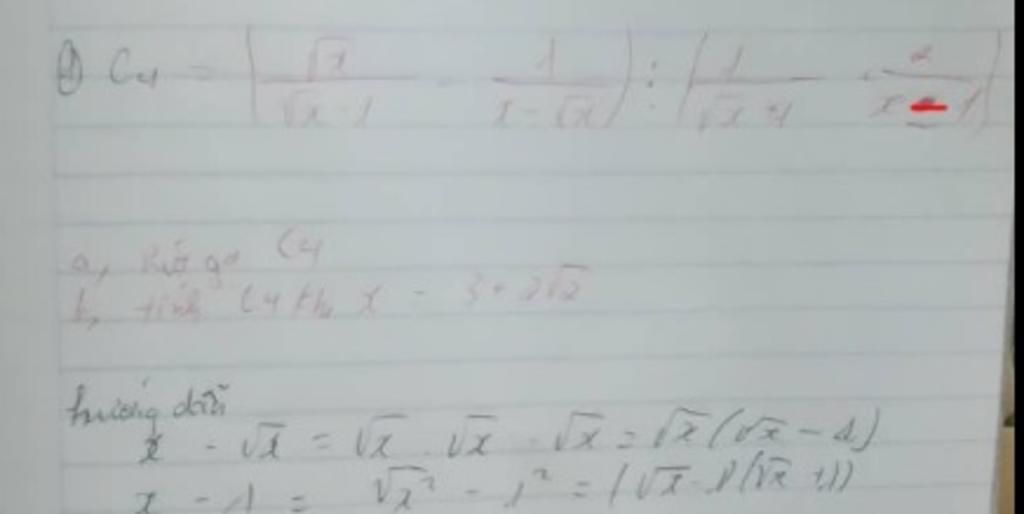 ④ C₄ = (√x/(√x - 1) - 1/(x - √x)) : (1/(√x + 1) 2/(x - 1))
a, Rút gọ C₄
b, tính C₄ khi x = 3 + 2√2
hướng dẫn
x - √x = √x . √x - √x = √x(√x - 1)
x - 1 = √x² - 1² = (√x - 1)(√x + 1)